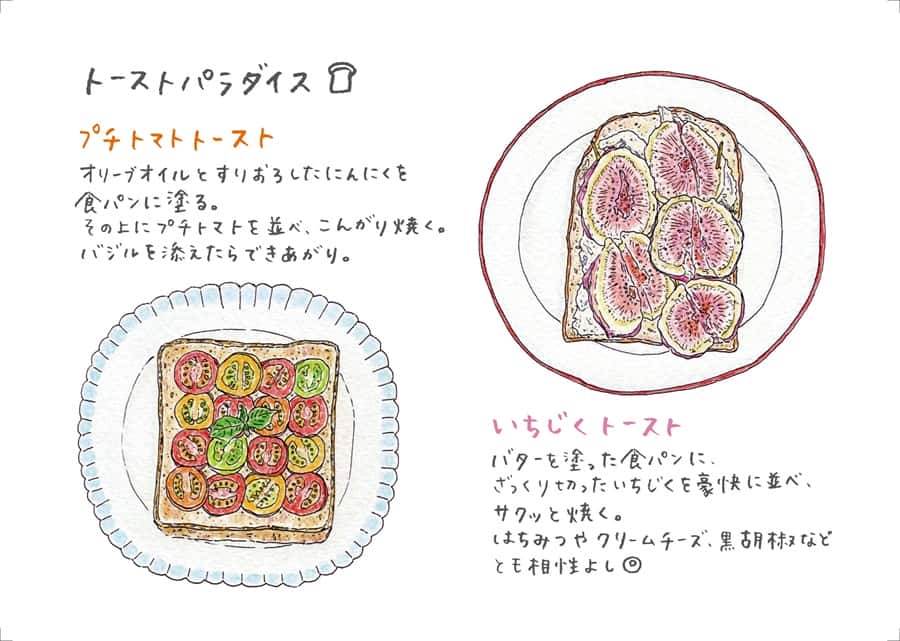 トーストパラダイス
プチトマトトースト
オリーブオイルとすりおろしたにんにくを
食パンに塗る。
その上にプチトマトを並べ、こんがり焼く。
バジルを添えたらできあがり。
いちじくトースト
バターを塗った食パンに、
ざっくり切ったいちじくを豪快に並べ、
サクッと焼く。
はちみつやクリームチーズ、黒胡椒など
とも相性よし◎